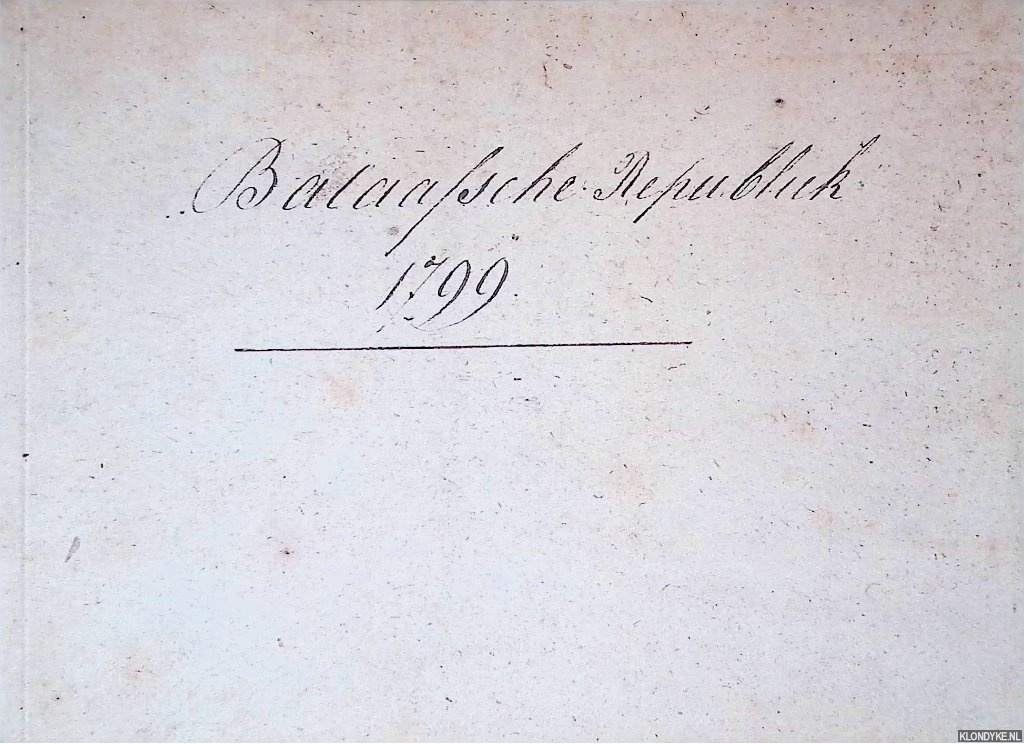 Bataafsche Republiek
1799.
KLONDYKE.NL